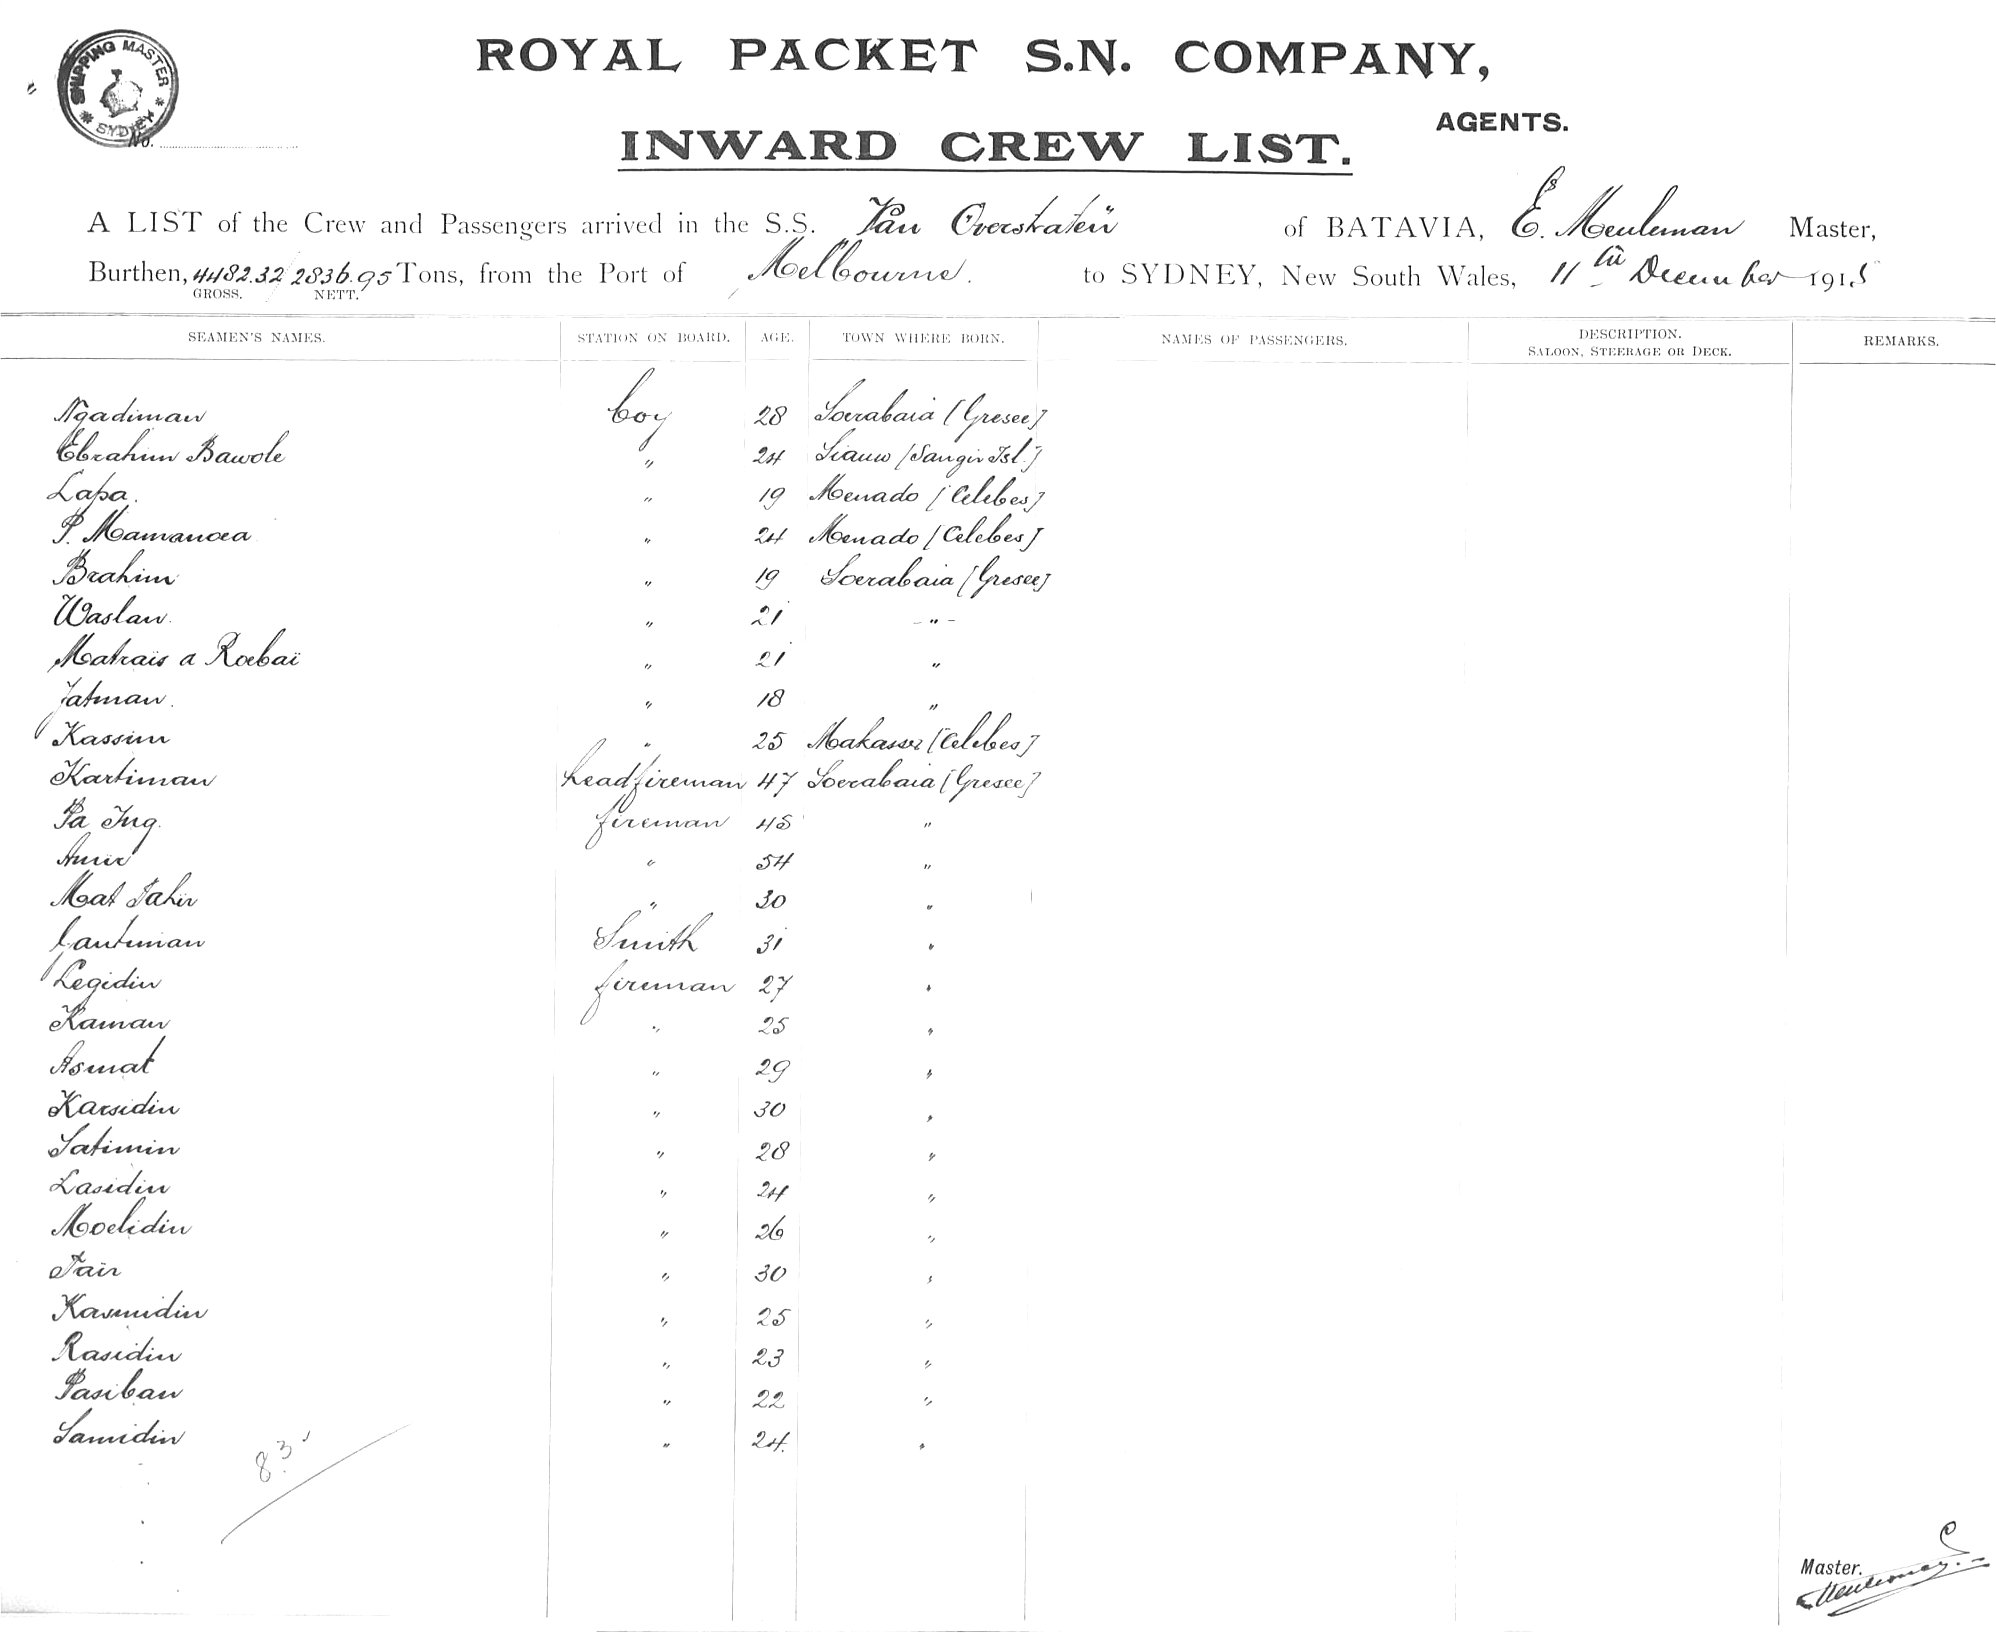 SHIPPING MASTER
SYDNEY
No.
ROYAL PACKET S.N. COMPANY,
AGENTS.
INWARD CREW LIST.
A LIST of the Crew and Passengers arrived in the S.S. Van Overstraten of BATAVIA, E. Meuleman Master,
Burthen, 4482.32 / 2836.95 Tons, from the Port of Melbourne. to SYDNEY, New South Wales, 11th December 1915
GROSS. NETT.
SEAMEN'S NAMES. STATION ON BOARD. AGE. TOWN WHERE BORN. NAMES OF PASSENGERS. DESCRIPTION. SALOON, STEERAGE OR DECK. REMARKS.
Ngadiman boy 28 Soerabaia [Gresee]
Ebrahim Bawole " 24 Siauw [Sangir Isl.]
Lapa. " 19 Menado [Celebes]
P. Mamanoea " 24 Menado [Celebes]
Brahim " 19 Soerabaia [Gresee]
Waslan. " 21 - " -
Matrais a Roebaï " 21 "
Jatman. " 18 "
Kassim " 25 Makasser [Celebes]
Kartiman headfireman 47 Soerabaia [Gresee]
Pa Ing. fireman 45 "
Amir " 54 "
Mat Tahir " 30 "
Gantiman Smith 31 "
Legidin fireman 27 "
Kaman " 25 "
Asmat " 29 "
Karsidin " 30 "
Satimin " 28 "
Lasidin " 24 "
Moelidin " 26 "
Tair " 30 "
Kasmidin " 25 "
Rasidin " 23 "
Pasiban " 22 "
Samidin " 24. "
83
Master.
Meuleman